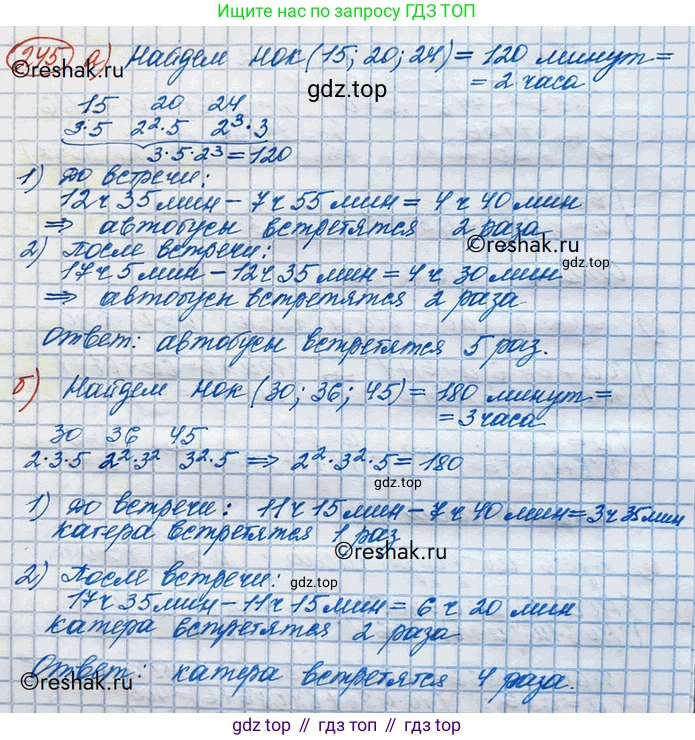 Больше решений по запросу ГДЗ ТОП
245 а) Найдем НОК (15; 20; 24) = 120 минут =
= 2 часа
gdz.top
©reshak.ru
15 20 24
3·5 2²·5 2³·3
3·5·2³=120
1) До встречи:
12 ч 35 мин - 7 ч 55 мин = 4 ч 40 мин
⇒ автобусы встретятся 2 раза
©reshak.ru
2) После встречи:
gdz.top
17 ч 5 мин - 12 ч 35 мин = 4 ч 30 мин
⇒ автобусы встретятся 2 раза
Ответ: автобусы встретятся 5 раз.
б) Найдем НОК (30; 36; 45) = 180 минут =
= 3 часа
30 36 45
2·3·5 2²·3² 3²·5 ⇒ 2²·3²·5=180
gdz.top
1) До встречи: 11 ч 15 мин - 7 ч 40 мин = 3 ч 35 мин
катера встретятся 1 раз
©reshak.ru
2) После встречи:
gdz.top
17 ч 35 мин - 11 ч 15 мин = 6 ч 20 мин
катера встретятся 2 раза
Ответ: катера встретятся 4 раза.
©reshak.ru
gdz top // гдз топ // gdz.top // гдз.топ